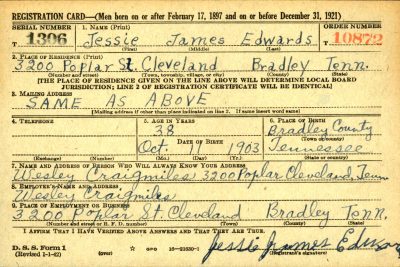 REGISTRATION CARD—(Men born on or after February 17, 1897 and on or before December 31, 1921)
SERIAL NUMBER 1. NAME (Print) ORDER NUMBER
T 1306 Jessie James Edwards T 10872
(First) (Middle) (Last)
2. PLACE OF RESIDENCE (Print)
3200 Poplar St. Cleveland Bradley Tenn.
(Number and street) (Town, township, village, or city) (County) (State)
[THE PLACE OF RESIDENCE GIVEN ON THE LINE ABOVE WILL DETERMINE LOCAL BOARD
JURISDICTION; LINE 2 OF REGISTRATION CERTIFICATE WILL BE IDENTICAL]
3. MAILING ADDRESS
SAME AS ABOVE
[Mailing address if other than place indicated on line 2. If same insert word same]
4. TELEPHONE 5. AGE IN YEARS 6. PLACE OF BIRTH
38 Bradley County
DATE OF BIRTH (Town or county)
Oct. 1903 Tennessee
(Exchange) (Number) (Mo.) (Day) (Yr.) (State or country)
7. NAME AND ADDRESS OF PERSON WHO WILL ALWAYS KNOW YOUR ADDRESS
Wesley Craigmiles 3200 Poplar Cleveland, Tenn
8. EMPLOYER'S NAME AND ADDRESS
Wesley Craigmiles
9. PLACE OF EMPLOYMENT OR BUSINESS
3200 Poplar St. Cleveland Bradley Tenn.
(Number and street or R. F. D. number) (Town) (County) (State)
I AFFIRM THAT I HAVE VERIFIED ABOVE ANSWERS AND THAT THEY ARE TRUE.
D. S. S. Form 1
(Revised 1-1-42) (over) 16—21630-1 Jessie James Edwards